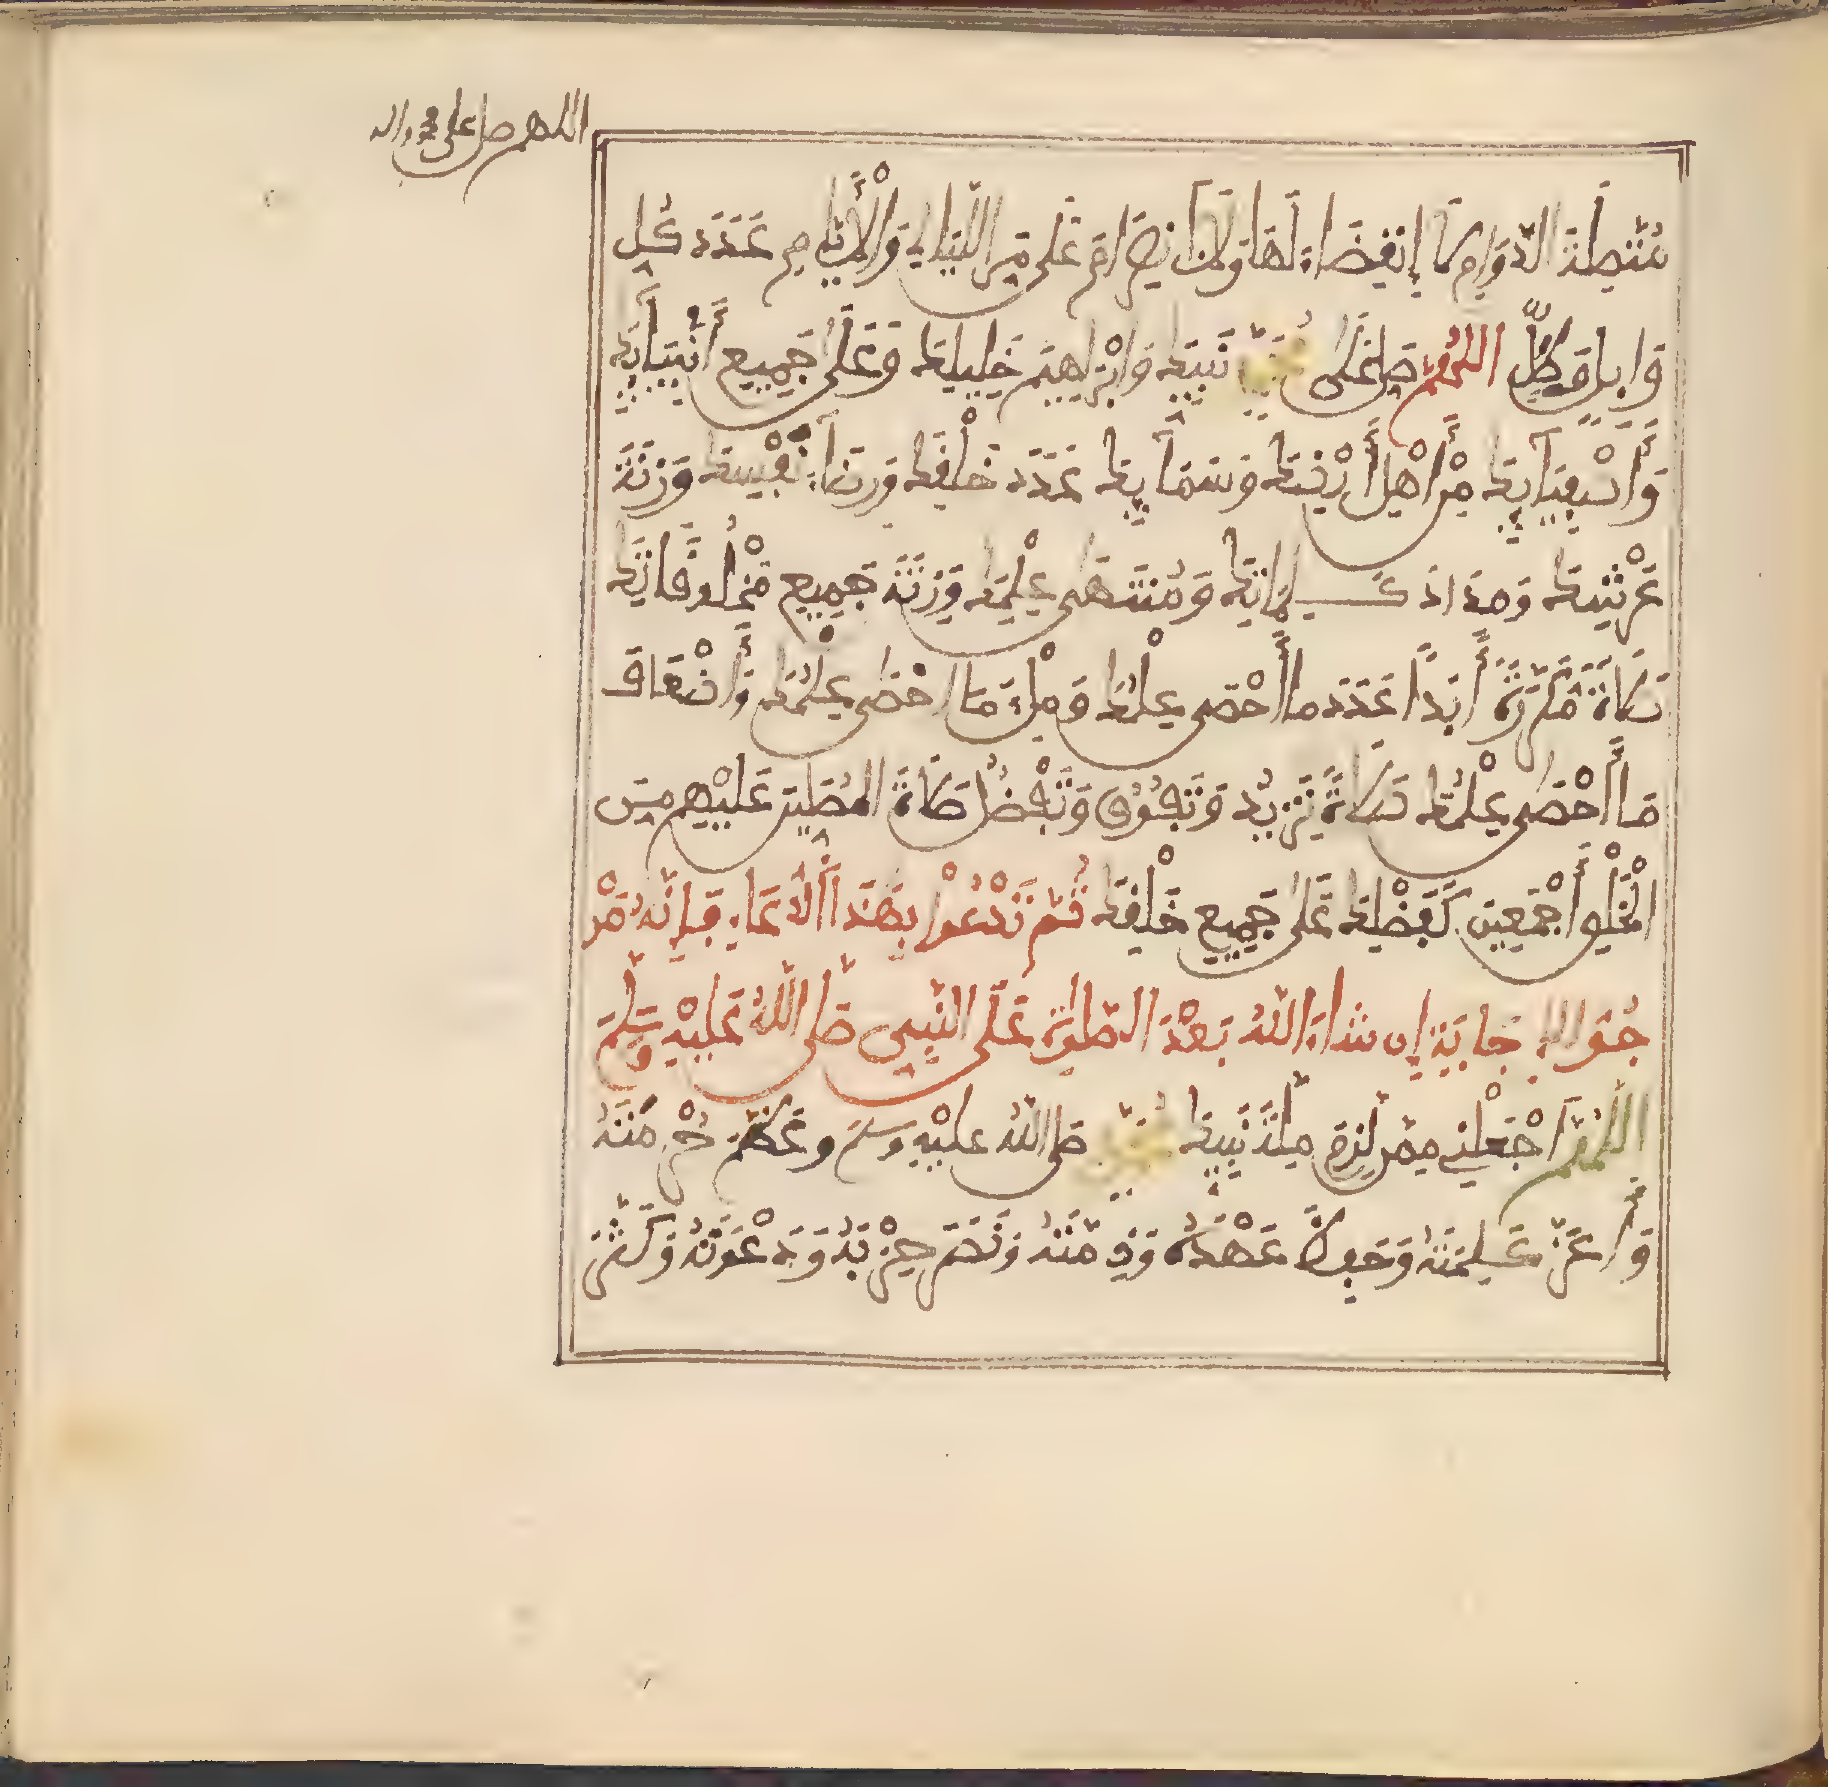 اللهم صل على محمد واله
مُتَّصِلَةَ الدَّوَامِ لَا إِنْفِضَاءَ لَهَا وَلَا انْصِرَامَ عَلَى مَرِّ اللَّيَالِي وَالْأَيَّامِ عَدَدَ كُلِّ
وَابِلٍ وَطَلٍّ اللَّهُمَّ صَلِّ عَلَى مُحَمَّدٍ نَبِيِّكَ وَإِبْرَاهِيمَ خَلِيلِكَ وَعَلَى جَمِيعِ أَنْبِيَائِكَ
وَأَصْفِيَائِكَ مِنْ أَهْلِ أَرْضِكَ وَسَمَائِكَ عَدَدَ خَلْقِكَ وَرِضَاءَ نَفْسِكَ وَزِنَةَ
عَرْشِكَ وَمِدَادَ كَلِمَاتِكَ وَمُنْتَهَى عِلْمِكَ وَزِنَةَ جَمِيعِ مَخْلُوقَاتِكَ
صَلَاةً مُكَرَّرَةً أَبَدًا عَدَدَ مَا أَحْصَى عِلْمُكَ وَمِلْءَ مَا أَحْصَى عِلْمُكَ وَأَضْعَافَ
مَا أَحْصَى عِلْمُكَ صَلَاةً تَزِيدُ وَتَفُوقُ وَتَفْضُلُ صَلَاةَ الْمُصَلِّينَ عَلَيْهِم مِنَ
الْخَلْقِ أَجْمَعِينَ كَفَضْلِكَ عَلَى جَمِيعِ خَلْقِكَ ثُمَّ تَدْعُوا بِهَذَا الدُّعَاءِ فَإِنَّهُ مَرْ
جُوُّ الإِجَابَةِ إِن شَاءَ اللَّهُ بَعْدَ الصَّلَوةِ عَلَى النَّبِيِّ صَلَّى اللَّهُ عَلَيْهِ وَسَلَّمَ
اللَّهُمَّ اجْعَلْنِي مِمَّن لَزِمَ مِلَّةَ نَبِيِّكَ مُحَمَّدٍ صَلَّى اللَّهُ عَلَيْهِ وَسَلَّمَ وَعَظَّمَ حُرْمَتَهُ
وَأَعَزَّ كَلِمَتَهُ وَحَفِظَ عَهْدَهُ وَذِمَّتَهُ وَنَصَرَ حِزْبَهُ وَدَعْوَتَهُ وَكَثَّرَ